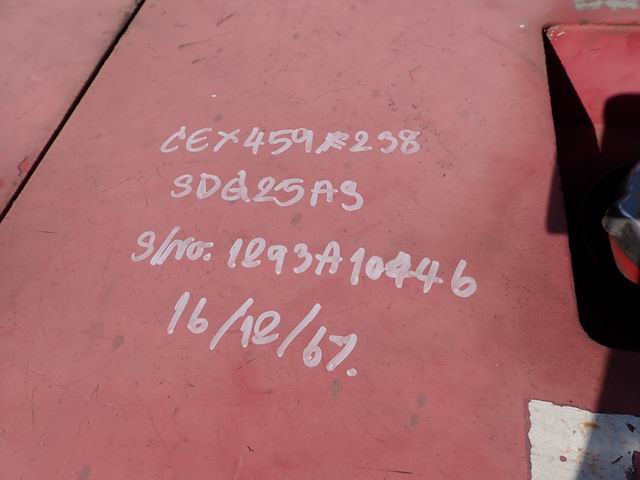 CEX459*238
SDG25AS
S/No: 1293A10446
16/12/67.